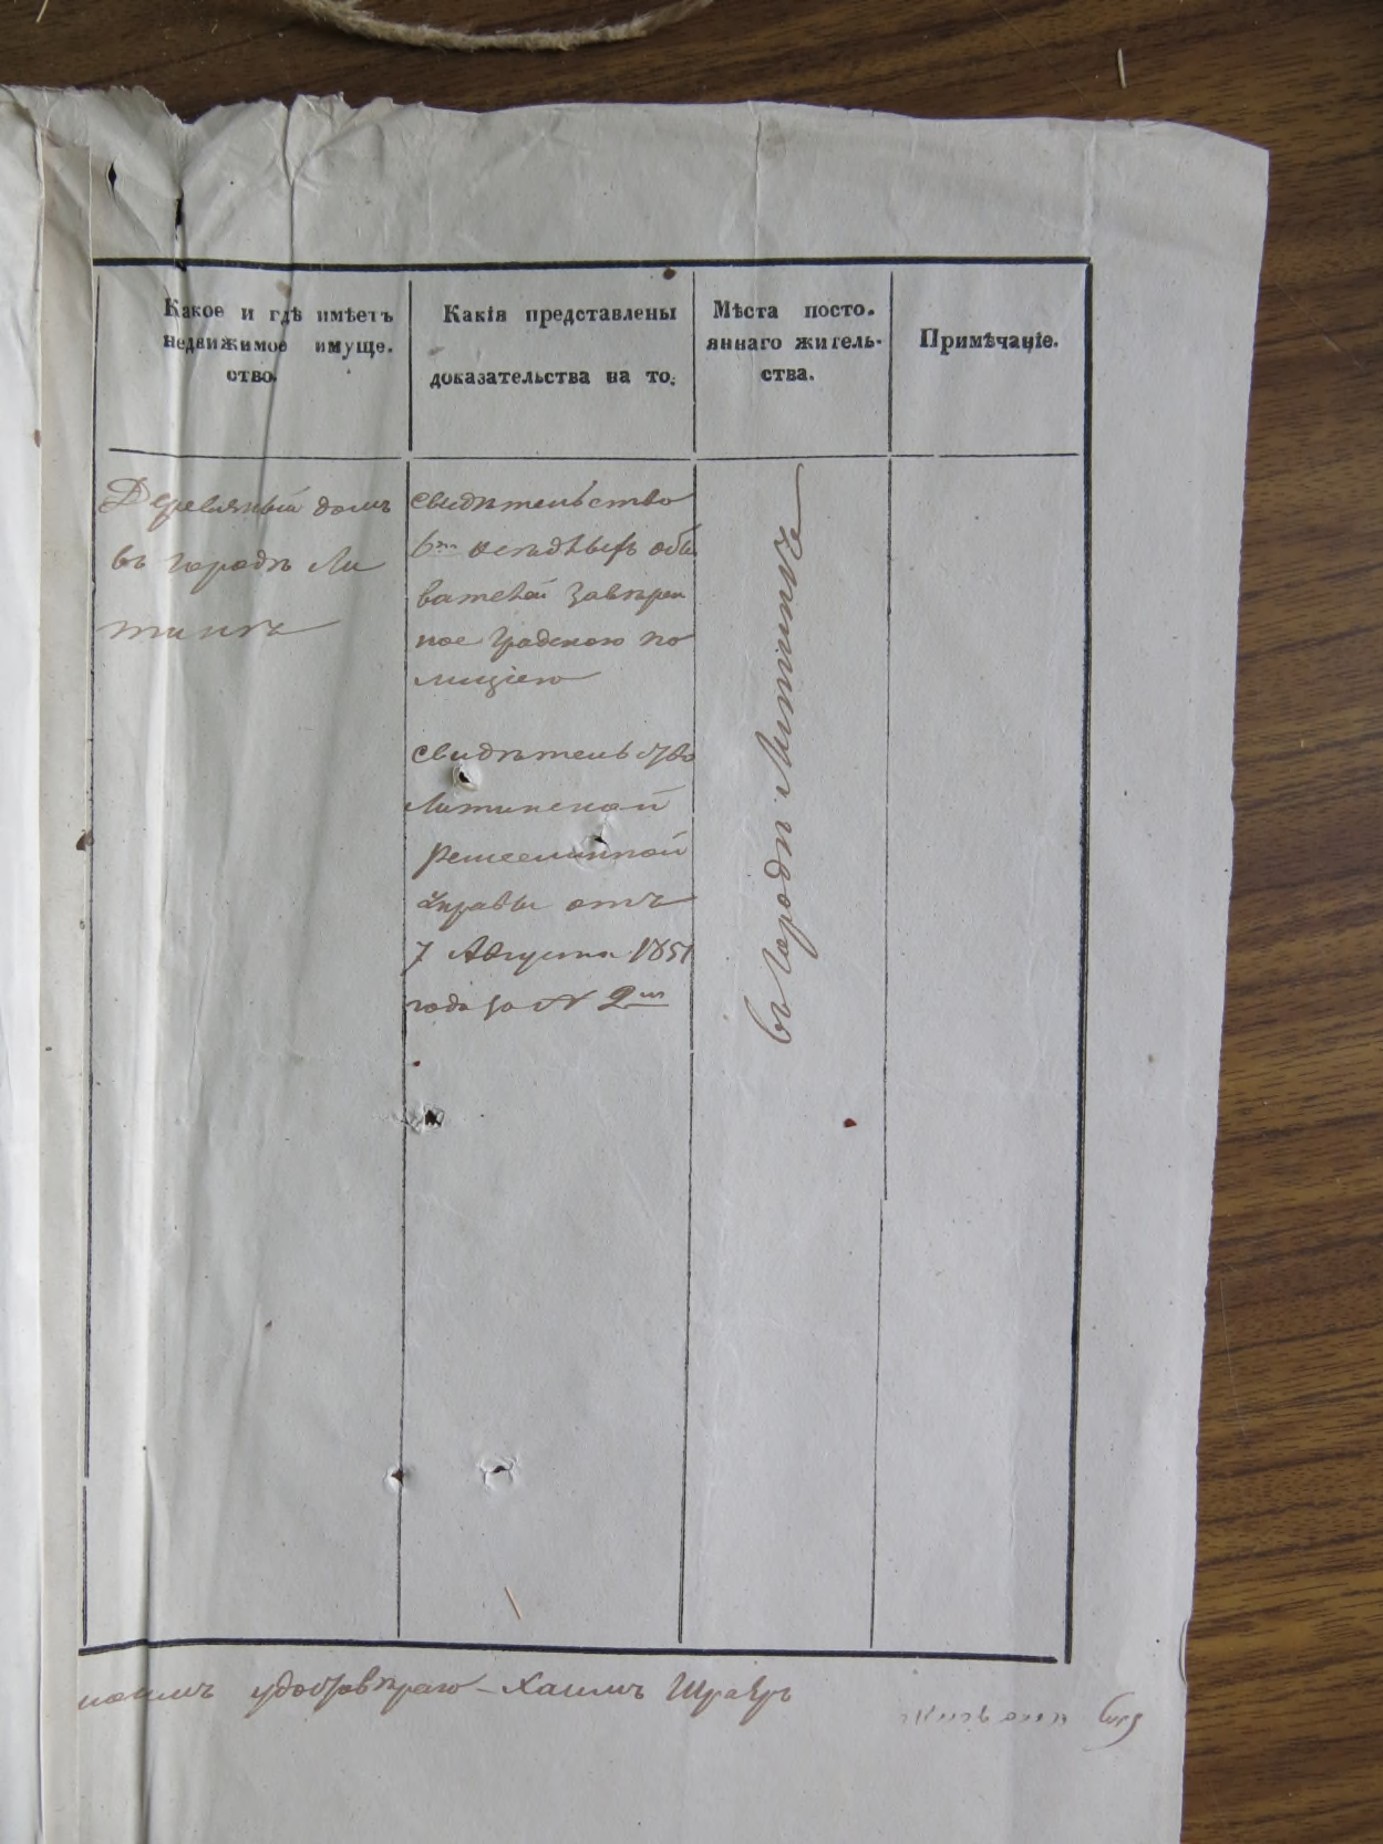 Какое и гдѣ имѣетъ
недвижимое имуще-
ство.
Какія представлены
доказательства на то.
Мѣста посто-
яннаго житель-
ства.
Примѣчаніе.
Деревяный домъ
въ городѣ Ли
тинѣ
свидѣтельство
6ти осѣдлыхъ обы
вателей завѣрен
ное Градскою по
лиціею
свидѣтельство
Литинской
Ремесленной
Управы отъ
7 Августа 1851
года за N 2м
въ городѣ Литинѣ
удостовѣраю - Хаимъ